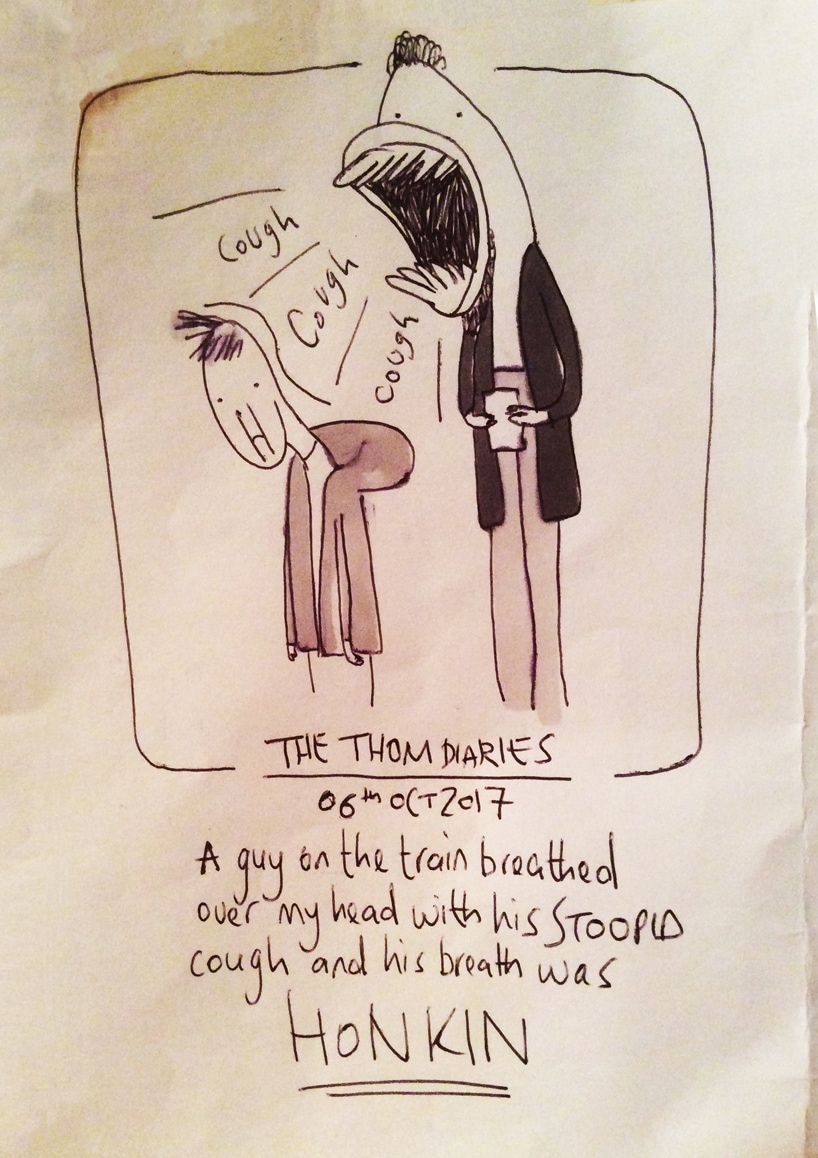 Cough
Cough
Cough
THE THOM DIARIES
06th OCT 2017
A guy on the train breathed
over my head with his STOOPID
cough and his breath was
HONKIN